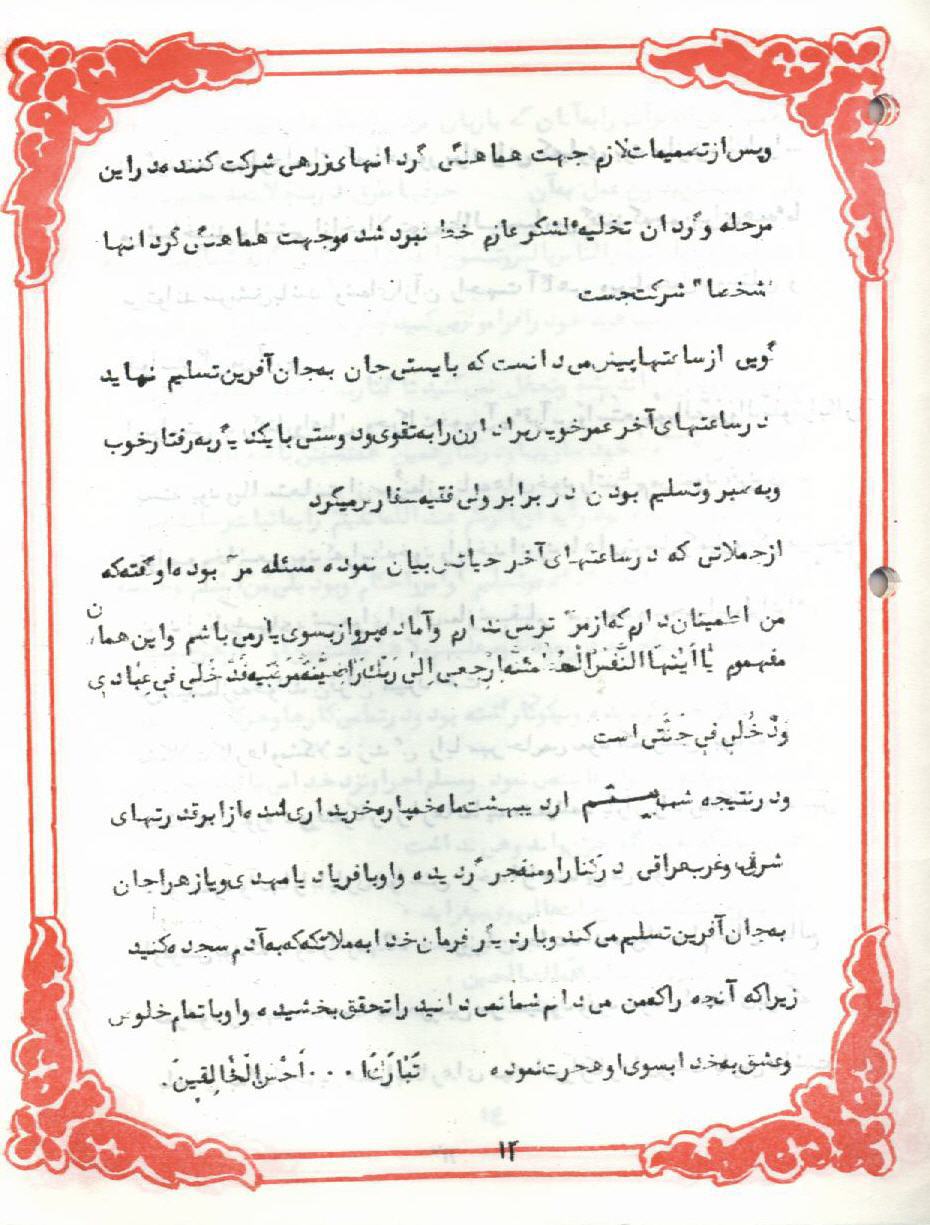 وپس از تصمیمات لازم جهت هماهنگی گردانهای زرهی شرکت کننده در این
مرحله و گردان تخلیه لشکر عازم خط نبرد شده و جهت هماهنگی گردانها
شخصا" شرکت جست
گویی از ساعتها پیش می دانست که بایستی جان به جان آفرین تسلیم نماید
در ساعتهای آخر عمر خویش برادران را به تقوی و دوستی با یکدیگر به رفتار خوب
وبه صبر و تسلیم بودن در برابر ولی فقیه سفارش میکرد
از جملاتی که در ساعتهای آخر حیاتش بیان نموده مسئله مرگ بوده و او گفته که
من اطمینان دارم که از مرگ ترسی ندارم وآماده پرواز بسوی یار می باشم واین همان
مفهموم یا اَیَّتُهَا النَّفْسُ الْمُطْمَئِنَّه اِرْجِعی اِلیٰ رَبِّكِ راضِیَّةً مَرْضِیَّه فَدْ خُلی فی عِبادی
وَدْ خُلی فی جَنَّتی است
ودر نتیجه شب بیستم اردیبهشت ماه خمپاره خریداری شده از ابر قدرتهای
شرقی و غرب عراقی در کنار او منفجر گردیده و او با فریاد یا مهدی و یا زهرا جان
به جان آفرین تسلیم می کند و بار دیگر فرمان خدا به ملائکه که به آدم سجده کنید
زیرا که آنچه را که من می دانم شما نمی دانید را تحقق بخشیده و او با تمام خلوص
وعشق به خدا بسوی او هجرت نموده تَبارَكَ ا... اَحْسَنُ الْخالِقینَ.
۱۲